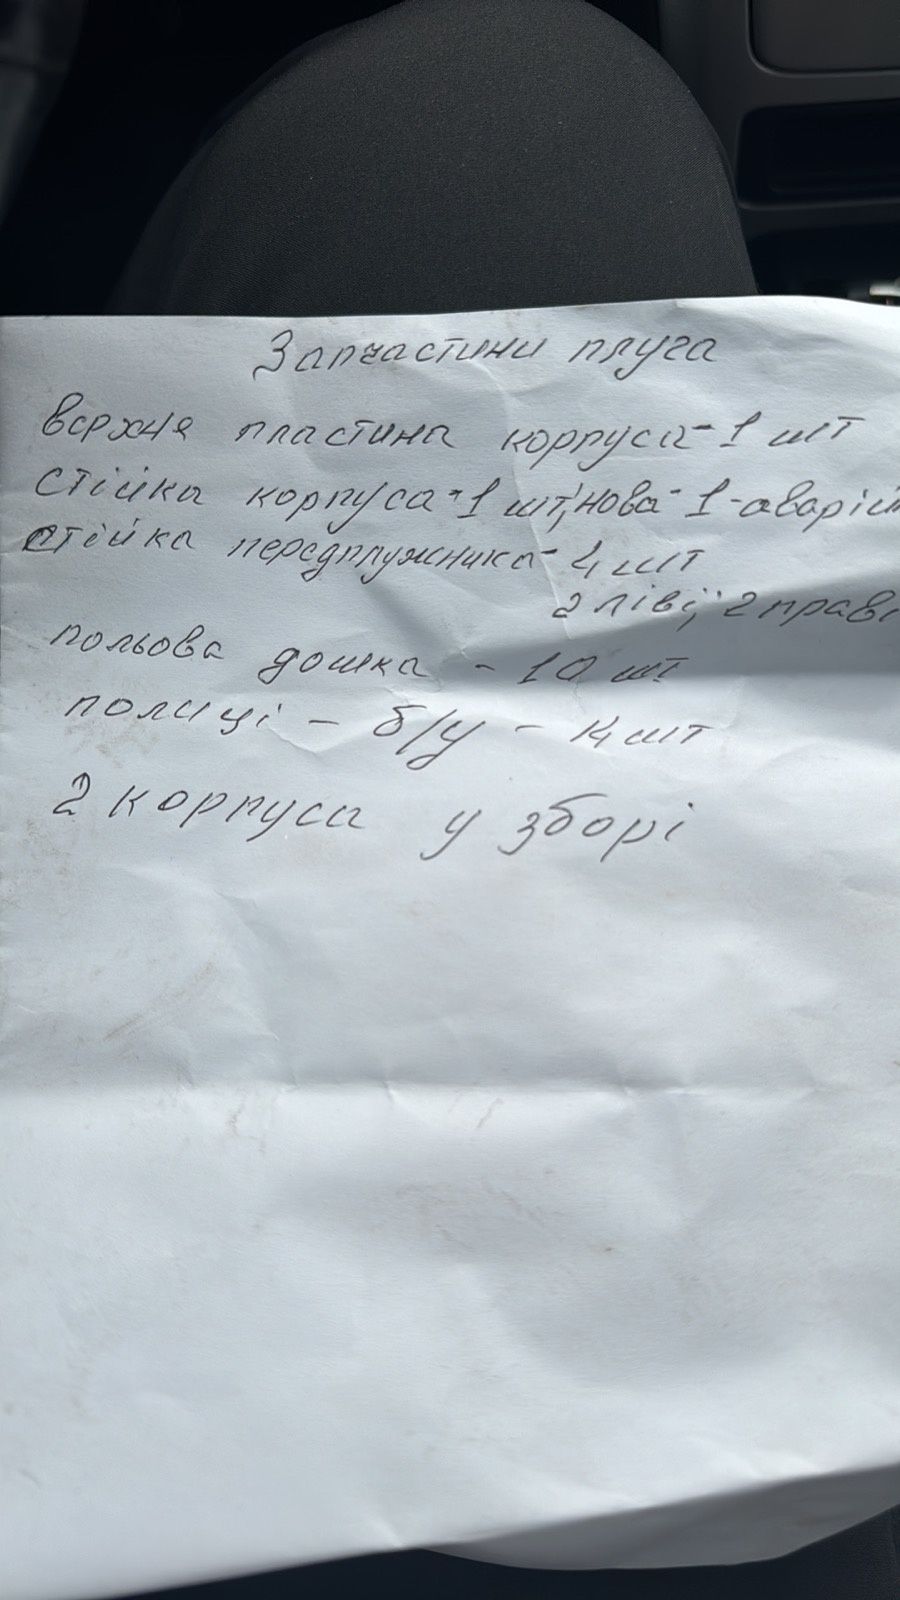 Запчастини плуга
верхня пластина корпуса - 1 шт
стійка корпуса - 1 шт, нова - 1 - аварій
стійка передплужника - 4 шт
2 ліві; 2 праві
польова дошка - 10 шт
полиці - б/у - 14 шт
2 корпуса у зборі